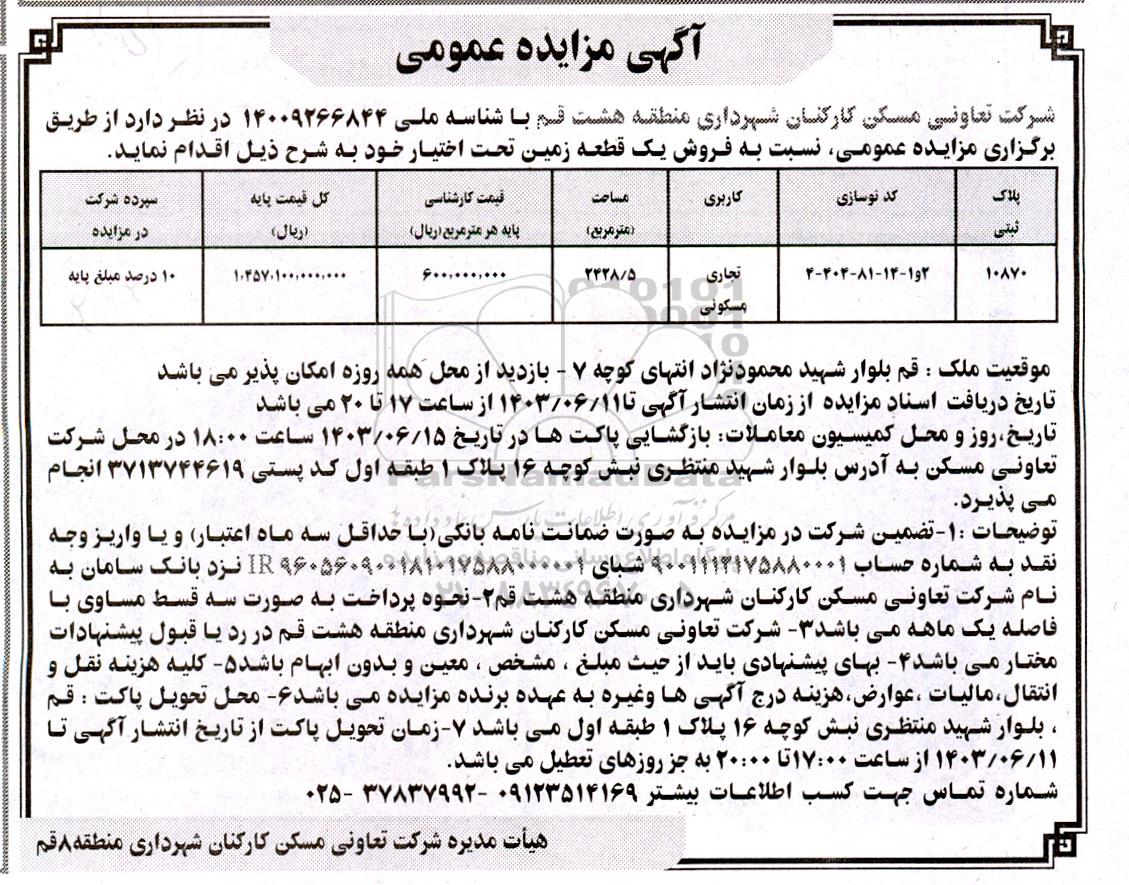 آگهی مزایده عمومی
شرکت تعاونی مسکن کارکنان شهرداری منطقه هشت قم با شناسه ملی ۱۴۰۰۹۲۶۶۸۴۴ در نظر دارد از طریق
برگزاری مزایده عمومی، نسبت به فروش یک قطعه زمین تحت اختیار خود به شرح ذیل اقدام نماید.
پلاک ثبتی | کد نوسازی | کاربری | مساحت (مترمربع) | قیمت کارشناسی پایه هر مترمربع(ریال) | کل قیمت پایه (ریال) | سپرده شرکت در مزایده
۱۰۸۷۰ | ۲و۱-۱۴-۸۱-۴۰۴-۴ | تجاری مسکونی | ۲۴۲۸/۵ | ۶۰۰,۰۰۰,۰۰۰ | ۱,۴۵۷,۱۰۰,۰۰۰,۰۰۰ | ۱۰ درصد مبلغ پایه
موقعیت ملک : قم بلوار شهید محمودنژاد انتهای کوچه ۷ - بازدید از محل همه روزه امکان پذیر می باشد
تاریخ دریافت اسناد مزایده از زمان انتشار آگهی تا ۱۴۰۳/۰۶/۱۱ از ساعت ۱۷ تا ۲۰ می باشد
تاریخ،روز و محل کمیسیون معاملات: بازگشایی پاکت ها در تاریخ ۱۴۰۳/۰۶/۱۵ ساعت ۱۸:۰۰ در محل شرکت
تعاونی مسکن به آدرس بلوار شهید منتظری نبش کوچه ۱۶ پلاک ۱ طبقه اول کد پستی ۳۷۱۳۷۴۴۶۱۹ انجام
می پذیرد.
ParsNamadData
مرکز فرآوری اطلاعات پارس نماد داده ها
توضیحات :۱-تضمین شرکت در مزایده به صورت ضمانت نامه بانکی(با حداقل سه ماه اعتبار) و یا واریز وجه
نقد به شماره حساب شبای IR نزد بانک سامان به
نام شرکت تعاونی مسکن کارکنان شهرداری منطقه هشت قم۲-نحوه پرداخت به صورت سه قسط مساوی با
فاصله یک ماهه می باشد۳- شرکت تعاونی مسکن کارکنان شهرداری منطقه هشت قم در رد یا قبول پیشنهادات
مختار می باشد۴- بهای پیشنهادی باید از حیث مبلغ ، مشخص ، معین و بدون ابهام باشد۵- کلیه هزینه نقل و
انتقال،مالیات ،عوارض،هزینه درج آگهی ها وغیره به عهده برنده مزایده می باشد۶- محل تحویل پاکت : قم
، بلوار شهید منتظری نبش کوچه ۱۶ پلاک ۱ طبقه اول می باشد ۷-زمان تحویل پاکت از تاریخ انتشار آگهی تا
۱۴۰۳/۰۶/۱۱ از ساعت ۱۷:۰۰تا ۲۰:۰۰ به جز روزهای تعطیل می باشد.
شماره تماس جهت کسب اطلاعات بیشتر ۰۹۱۲۳۵۱۴۱۶۹ -۳۷۸۳۷۹۹۲ -۰۲۵
هیأت مدیره شرکت تعاونی مسکن کارکنان شهرداری منطقه۸قم